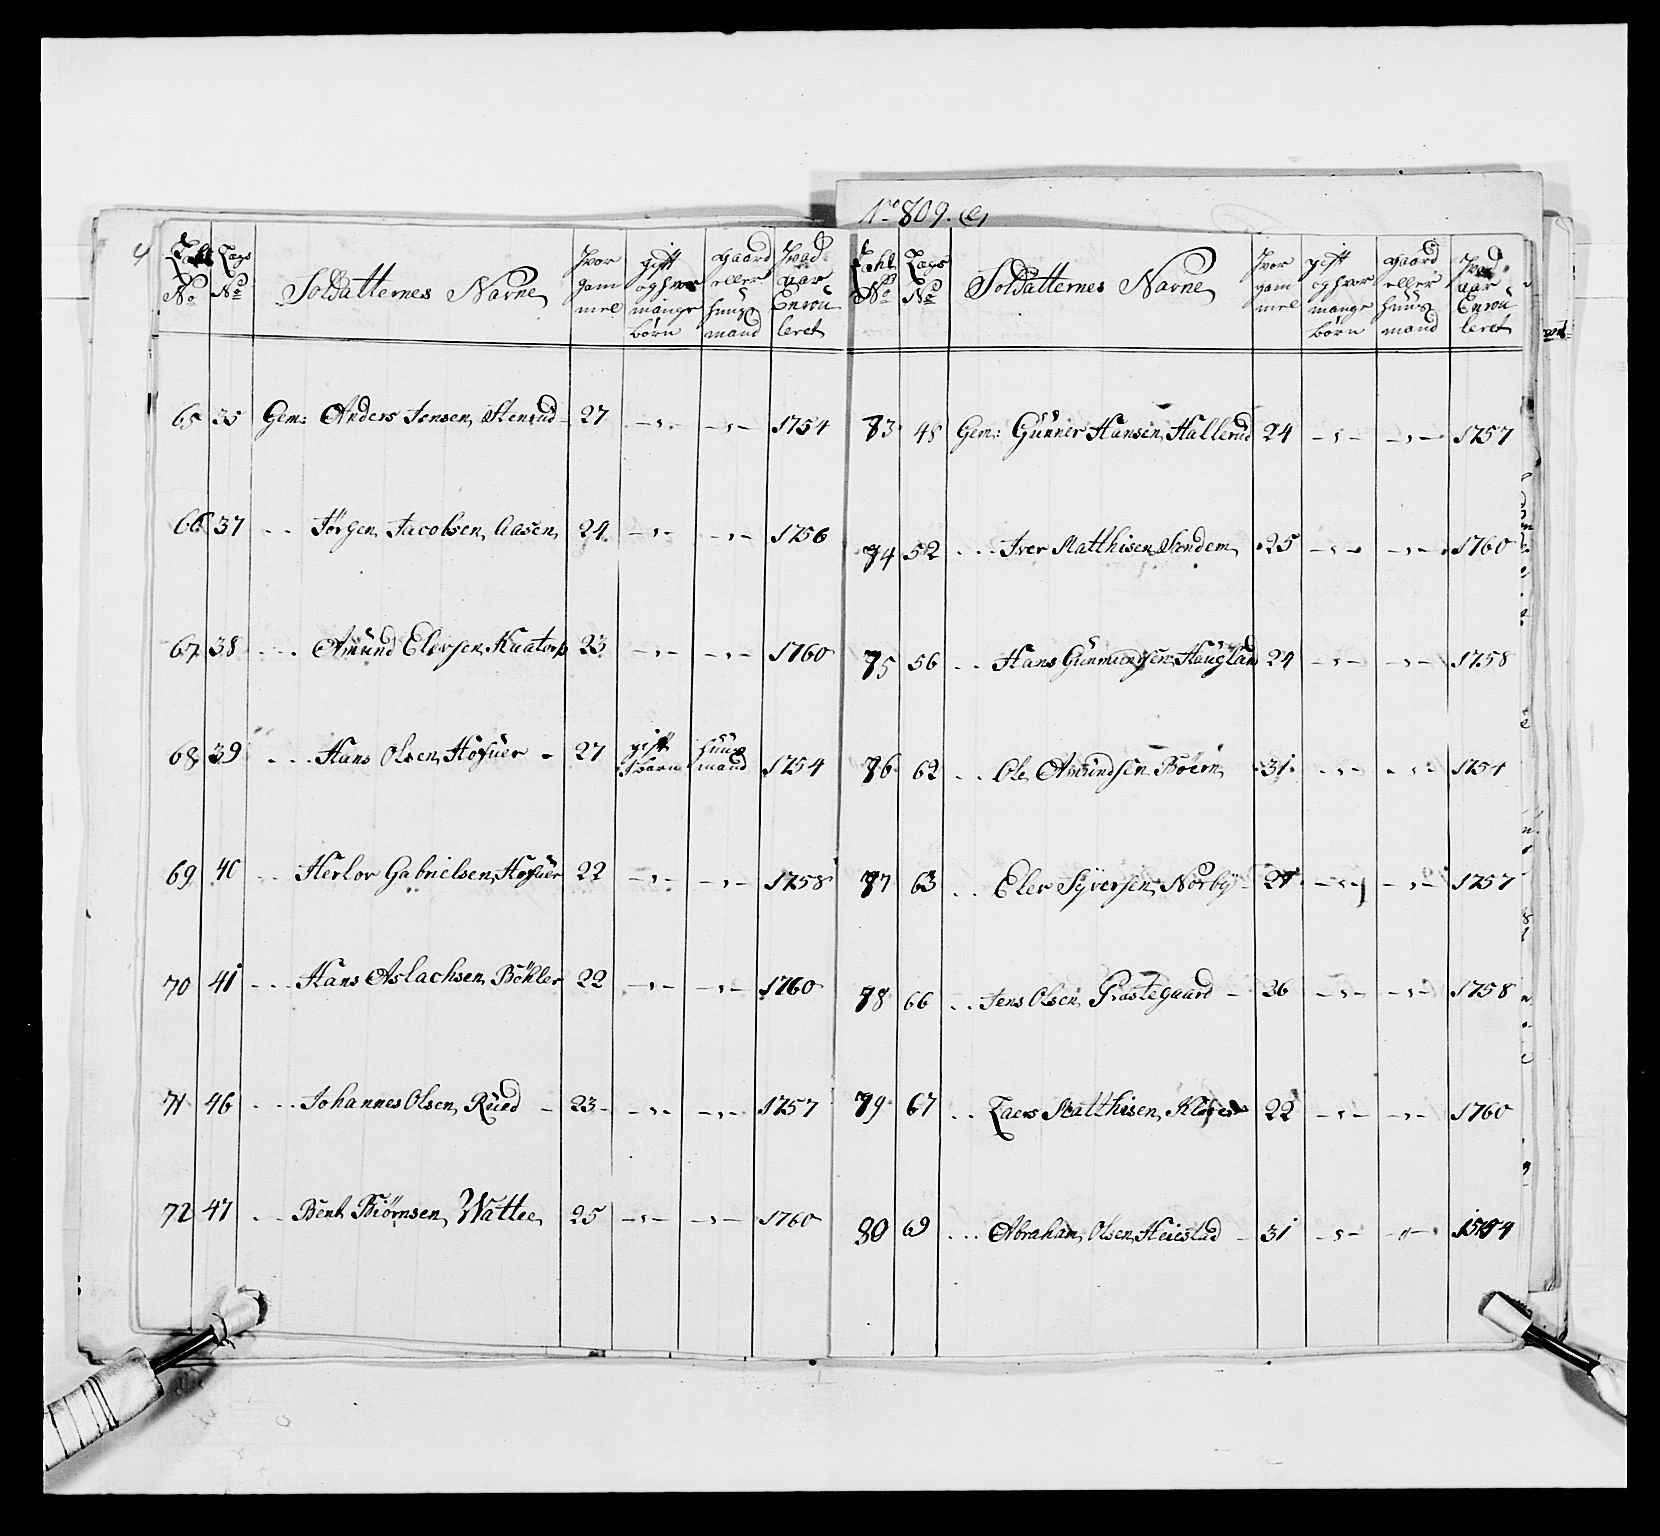 No 809. (e)
4
Tahl No
Lags No
Soldatternes Navne
Hvor gam mel
gift og hvor mange børn
gaard eller huus mand
Hvad aar Enrou leret
65 35 Gem: Anders Jensen, Stensrud 27 -,- -,- 1754
66 37 - - Jørgen Jacobsen, Aasen 24 -,- -,- 1756
67 38 - - - Amund Elersen, Kuatorp 23 -,- -,- 1760
68 39 - - - Hans Olsen, Hofuer - 27 gift 1 barn huusmand 1754
69 40 - - Herlov Gabrielsen, Hofuer 22 -,- -,- 1758
70 41 - - - Hans Aslachsen, Böhler 22 -,- -,- 1760
71 46 - - - Johannes Olsen, Rüed - 23 -,- -,- 1757
72 47 - - Bent Biörnsen, Wattee 25 -,- -,- 1760
Tahl No
Lags No
Soldatternes Navne
Hvor gam mel
gift og hvor mange børn
gaard eller huus mand
Hvad aar Enrou leret
73 48 Gem: Günner Hansen, Hallerud 24 -,- -,- 1757
74 52 - - - Iver Matthisen, Sendem 25 -,- -,- 1760
75 56 - - Hans Günmundsen, Haugland 24 -,- -,- 1758
76 62 - - Ole Amundsen Böern 31 -,- -,- 1754
77 63 - - Eler Syversen, Norby - 27 -,- -,- 1757
78 66 - - Jens Olsen, Præstegaard - 36 -,- -,- 1758
79 67 - - Laers Matthisen, 22 -,- -,- 1760
80 69 - - - Abraham Olsen, Heiestad - 31 -,- -,- 1754